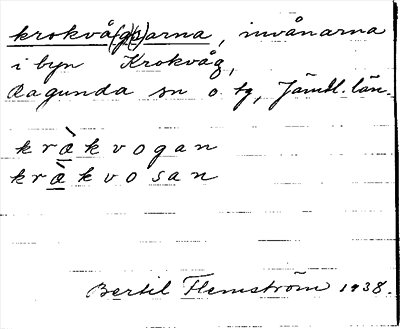 krokvå(g)(s)arna, invånarna
i byn Krokvåg,
Ragunda sn o. tg, Jämtl. län.
kràkvogan
kràkvosan
Bertil Flemström 1938.